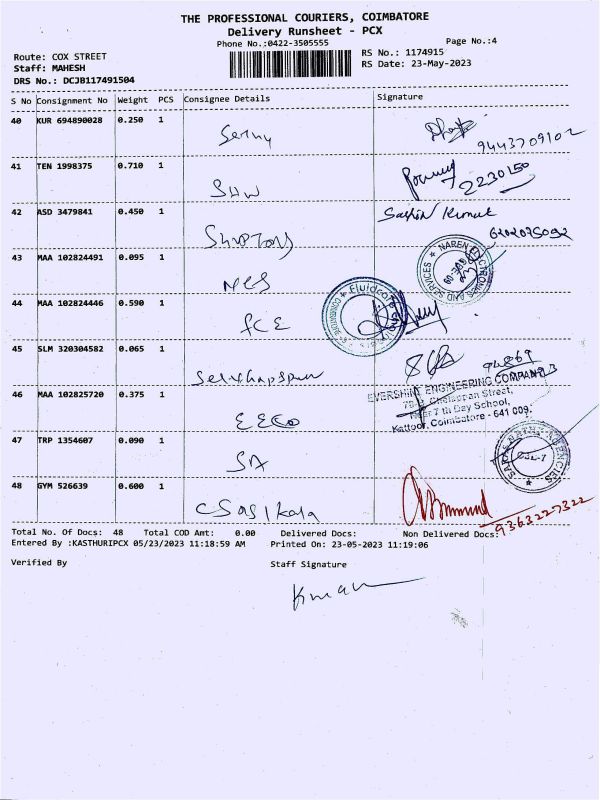 THE PROFESSIONAL COURIERS, COIMBATORE
Delivery Runsheet - PCX
Phone No.:0422-3505555
Page No.:4
Route: COX STREET
RS No.: 1174915
Staff: MAHESH
RS Date: 23-May-2023
DRS No.: DCJB117491504
S No Consignment No Weight PCS Consignee Details Signature
40 KUR 694890028 0.250 1
9443709102
41 TEN 1998375 0.710 1
SHW
2230150
42 ASD 3479841 0.450 1
Sachin Kumar
6202075092
43 MAA 102824491 0.095 1
NES
NAREN ELECTRONICS AND SERVICES
44 MAA 102824446 0.590 1
FCE
Fluidcon
45 SLM 320304582 0.065 1
94869
EVERSHINE ENGINEERING COMPANY
46 MAA 102825720 0.375 1
EECO
Chelappan Street,
Near 7 th Day School,
Kattoor, Coimbatore - 641 009.
47 TRP 1354607 0.090 1
SA
AGENCIES
CBE-7
48 GYM 526639 0.600 1
C Sasikala
9363227322
Total No. Of Docs: 48 Total COD Amt: 0.00 Delivered Docs: Non Delivered Docs:
Entered By :KASTHURIPCX 05/23/2023 11:18:59 AM Printed On: 23-05-2023 11:19:06
Verified By Staff Signature